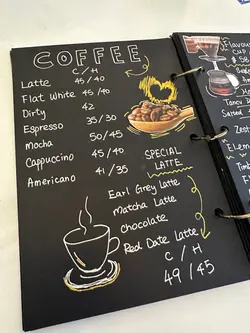 COFFEE
C / H
Latte 45 / 40
Flat White 45 / 40
Dirty 42
Espresso 35 / 30
Mocha 50 / 45
Cappuccino 45 / 40
Americano 41 / 35
SPECIAL
LATTE
Earl Grey Latte
Matcha Latte
chocolate
Red Date Latte
C / H
49 / 45
Flavour
cup
$ 58